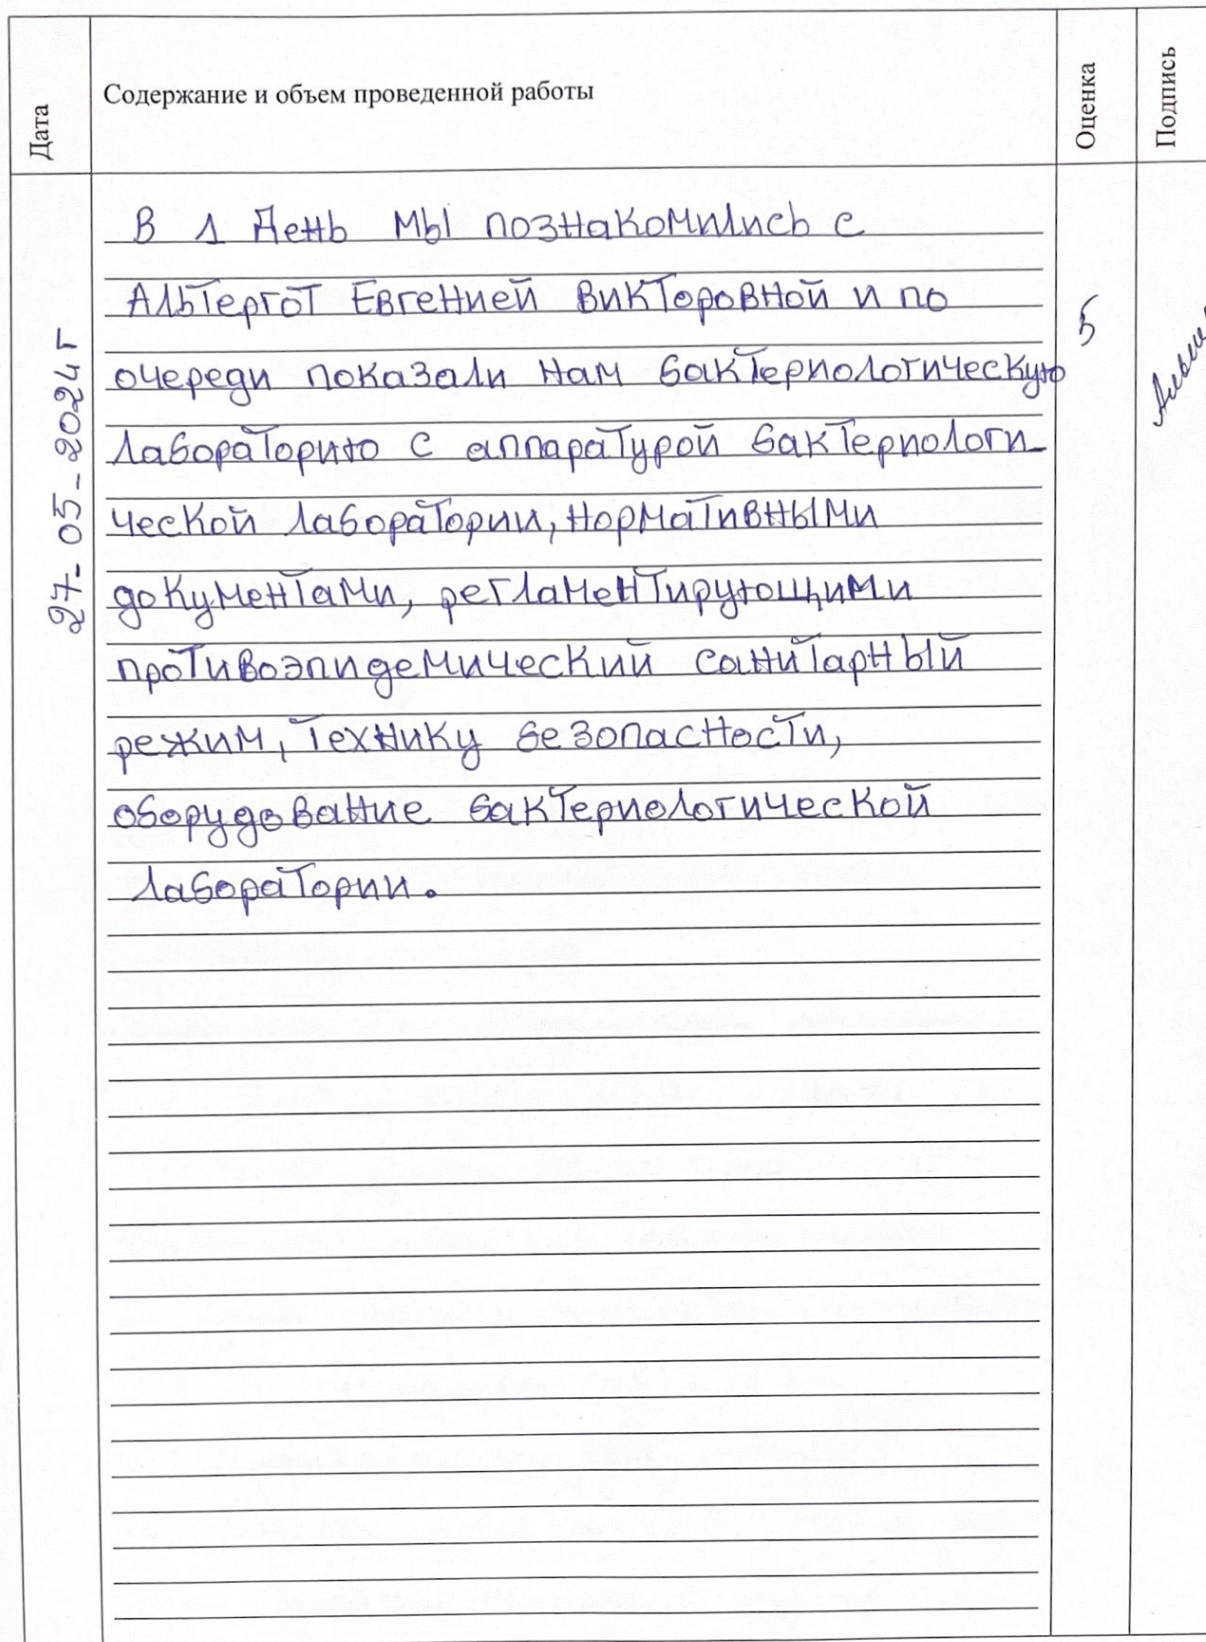 Дата
Содержание и объем проведенной работы
Оценка
Подпись
27-05-2024 г
В 1 День мы познакомились с
Альтергот Евгенией Викторовной и по
очереди показали нам бактериологическую
лабораторию с аппаратурой бактериологи-
ческой лаборатории, нормативными
документами, регламентирующими
противоэпидемический санитарный
режим, технику безопасности,
оборудование бактериологической
лаборатории.
5